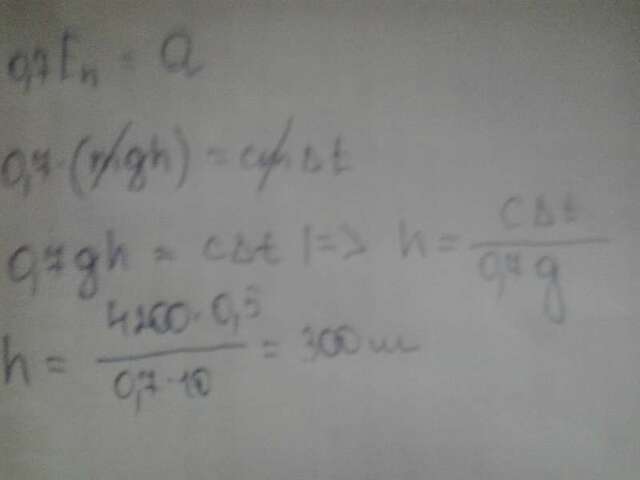 0,7Eп = Q
0,7·(mgh) = cmΔt
0,7gh = cΔt |=> h = cΔt / 0,7g
h = 4200·0,5 / 0,7·10 = 300 м